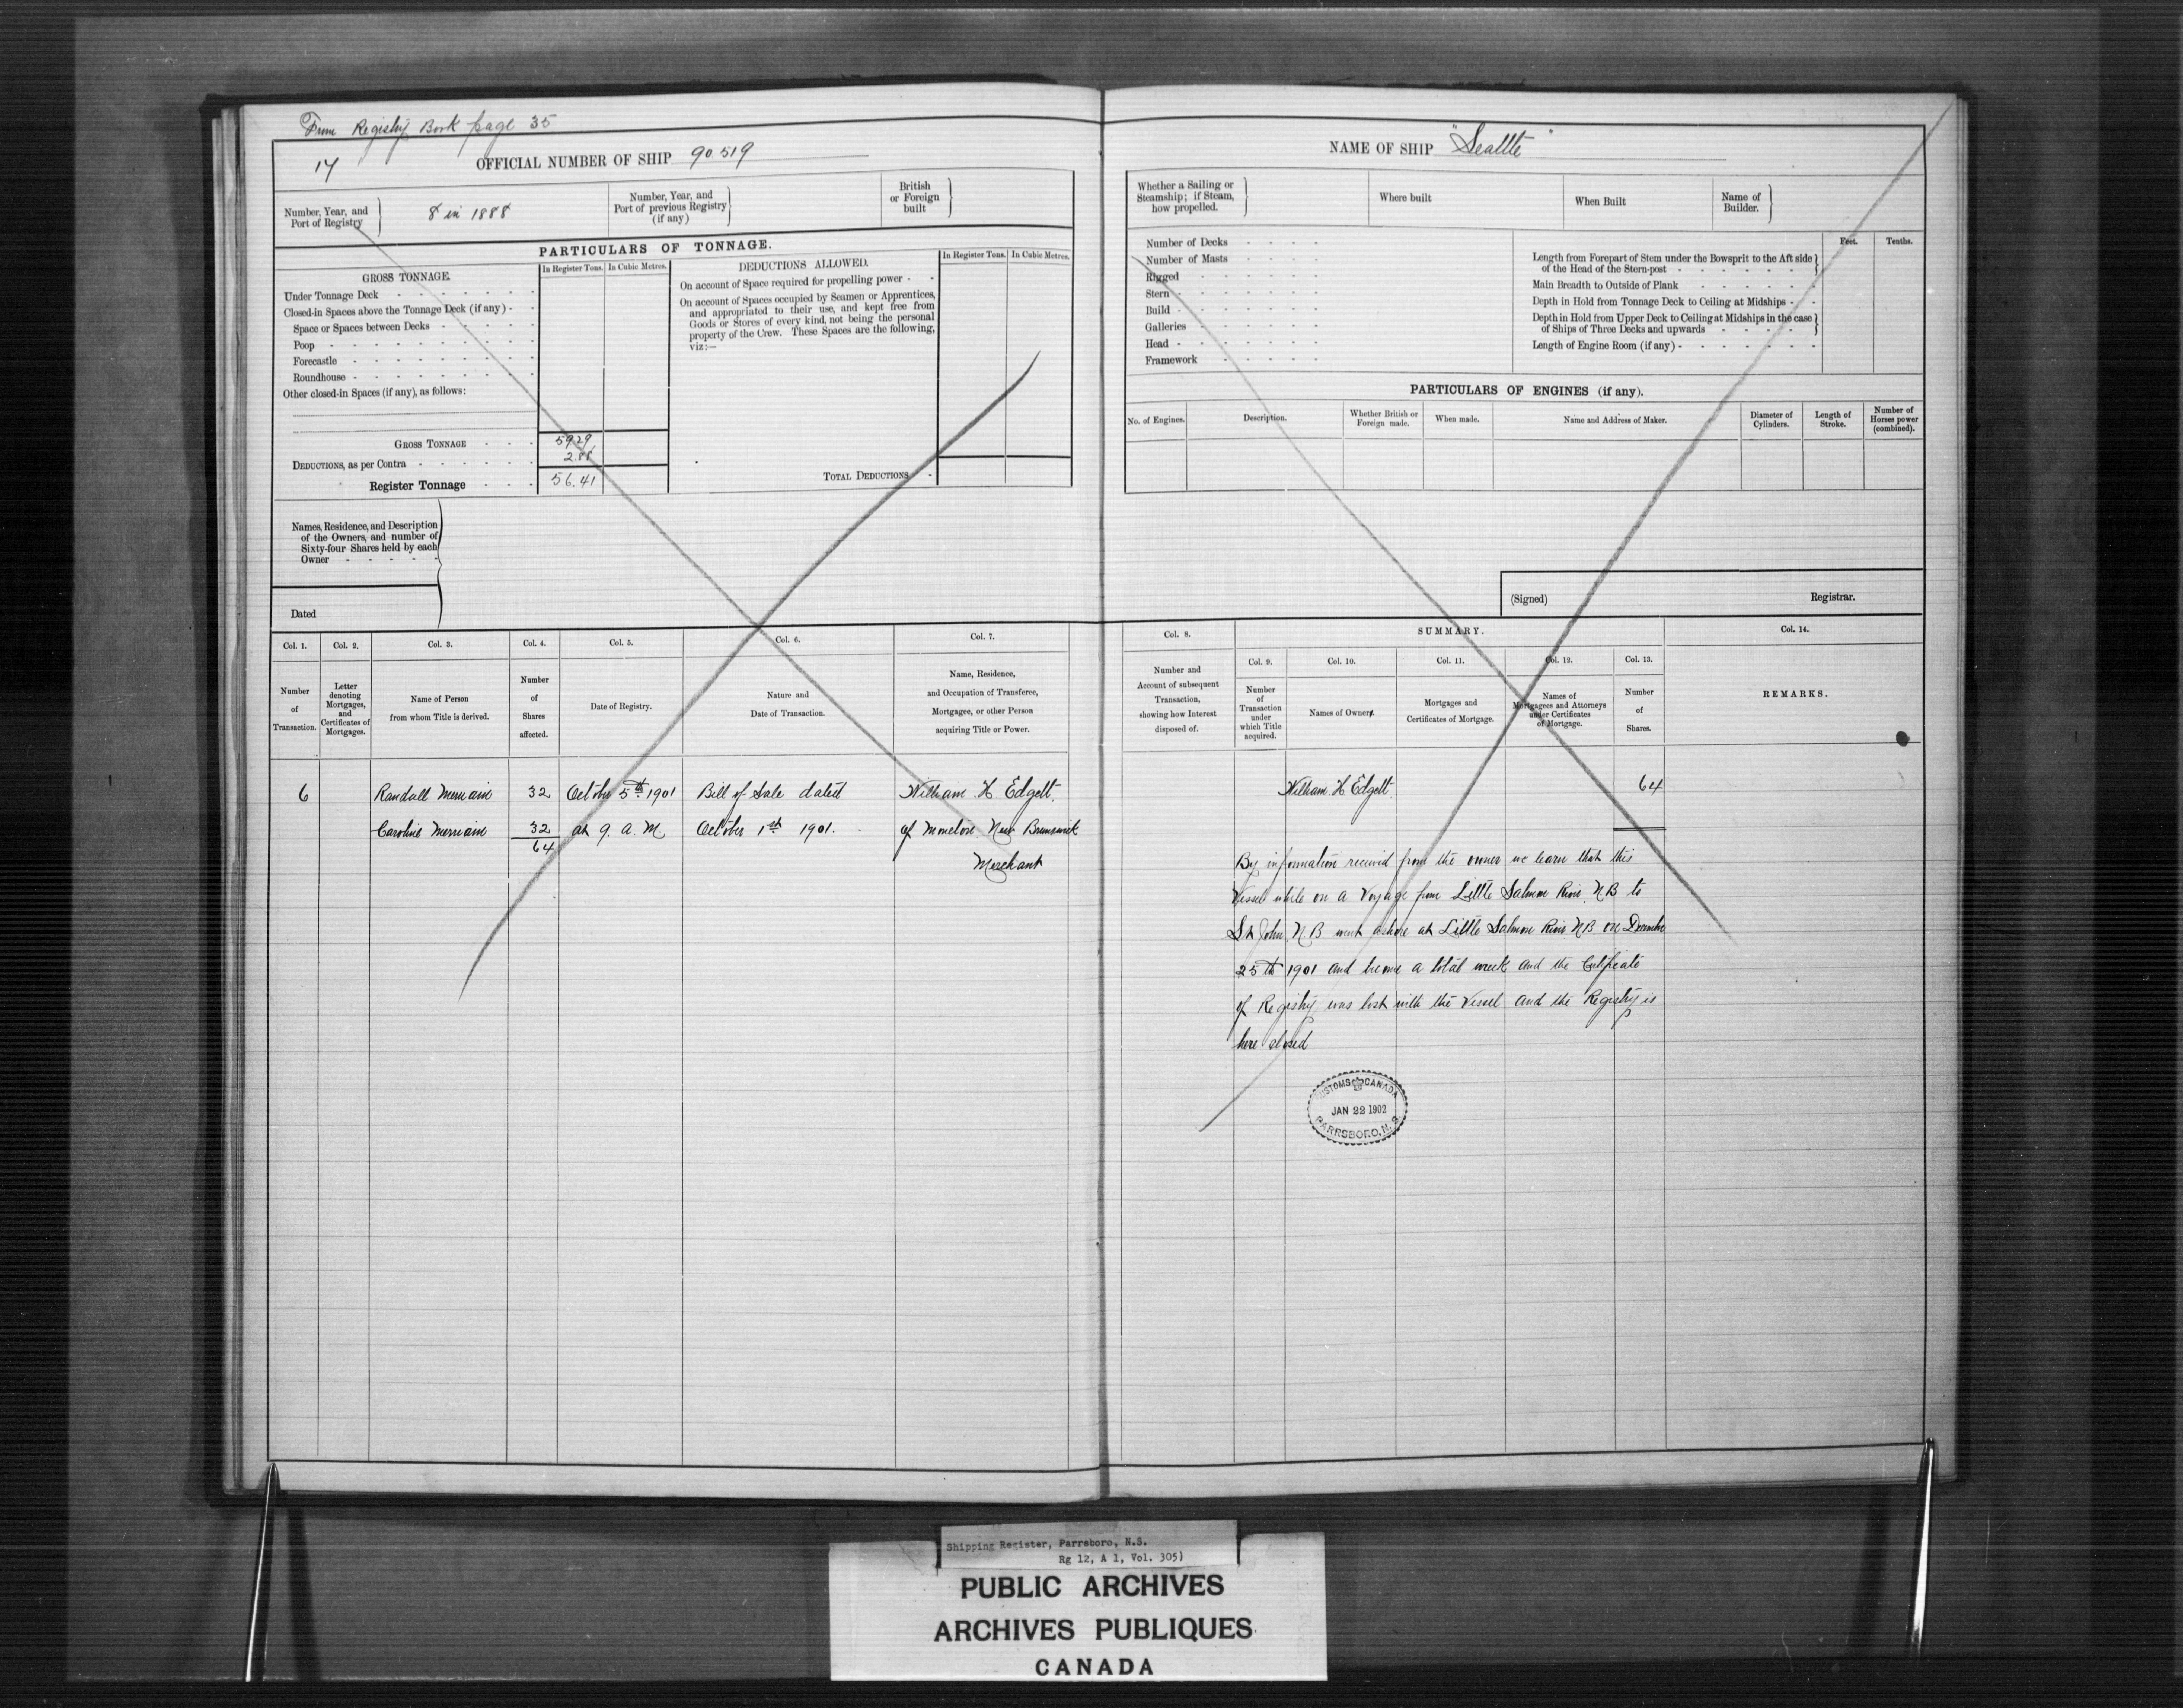 From Registry Book page 35
17
OFFICIAL NUMBER OF SHIP 90.519
Number, Year, and
Port of Registry
8 in 1888
Number, Year, and
Port of previous Registry
(if any)
British
or Foreign
built
PARTICULARS OF TONNAGE.
GROSS TONNAGE.
In Register Tons. In Cubic Metres.
Under Tonnage Deck
Closed-in Spaces above the Tonnage Deck (if any)
Space or Spaces between Decks
Poop
Forecastle
Roundhouse
Other closed-in Spaces (if any), as follows:
GROSS TONNAGE 59.29
DEDUCTIONS, as per Contra 2.88
Register Tonnage 56.41
DEDUCTIONS ALLOWED.
In Register Tons. In Cubic Metres.
On account of Space required for propelling power
On account of Spaces occupied by Seamen or Apprentices,
and appropriated to their use, and kept free from
Goods or Stores of every kind, not being the personal
property of the Crew. These Spaces are the following,
viz:—
TOTAL DEDUCTIONS
Names, Residence, and Description
of the Owners, and number of
Sixty-four Shares held by each
Owner
Dated
Col. 1. Col. 2. Col. 3. Col. 4. Col. 5. Col. 6. Col. 7.
Number
of
Transaction.
Letter
denoting
Mortgages,
and
Certificates of
Mortgages.
Name of Person
from whom Title is derived.
Number
of
Shares
affected.
Date of Registry.
Nature and
Date of Transaction.
Name, Residence,
and Occupation of Transferee,
Mortgagee, or other Person
acquiring Title or Power.
6 Randall Merriam 32 October 5th 1901 Bill of Sale dated William H Edgett
Caroline Merriam 32 at 9. A. M. October 1st 1901. of Moncton New Brunswick
64 Merchant
NAME OF SHIP "Seattle"
Whether a Sailing or
Steamship; if Steam,
how propelled.
Where built
When Built
Name of
Builder.
Number of Decks
Number of Masts
Rigged
Stern
Build
Galleries
Head
Framework
Feet. Tenths.
Length from Forepart of Stem under the Bowsprit to the Aft side
of the Head of the Stern-post
Main Breadth to Outside of Plank
Depth in Hold from Tonnage Deck to Ceiling at Midships
Depth in Hold from Upper Deck to Ceiling at Midships in the case
of Ships of Three Decks and upwards
Length of Engine Room (if any)
PARTICULARS OF ENGINES (if any).
No. of Engines.
Description.
Whether British or
Foreign made.
When made.
Name and Address of Maker.
Diameter of
Cylinders.
Length of
Stroke.
Number of
Horses power
(combined).
(Signed) Registrar.
Col. 8. SUMMARY. Col. 14.
Col. 9. Col. 10. Col. 11. Col. 12. Col. 13.
Number and
Account of subsequent
Transaction,
showing how Interest
disposed of.
Number
of
Transaction
under
which Title
acquired.
Names of Owners.
Mortgages and
Certificates of Mortgage.
Names of
Mortgagees and Attorneys
under Certificates
of Mortgage.
Number
of
Shares.
REMARKS.
William H Edgett 64
By information received from the owner we learn that this
Vessel while on a Voyage from Little Salmon River N B to
St John N B went ashore at Little Salmon River N B on December
25th 1901 and became a total wreck and the Certificate
of Registry was lost with the Vessel and the Registry is
here closed
CUSTOMS CANADA
JAN 22 1902
PARRSBORO, N.S.
Shipping Register, Parrsboro, N.S.
Rg 12, A 1, Vol. 305)
PUBLIC ARCHIVES
ARCHIVES PUBLIQUES
CANADA